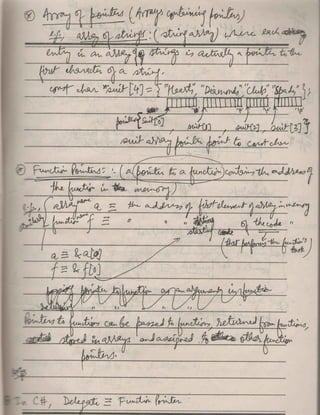 Array of pointers (Arrays containing pointers)
e.g., array of strings: (string array) where each
entry in an array of strings is actually a pointer to the
first character of a string.
const char *suit[4] = { "Hearts", "Diamonds", "Clubs", "Spades" };
pointer suit[0] suit[1] suit[2] suit[3]
suit array pointers point to const char
Function Pointers: (a pointer to a function) contains the address of
the function in memory)
e.g., array name a ≡ the address of first element of array in memory
function f ≡ " " starting of the code "
(that performs the function's
task)
a ≡ &a[0]
f ≡ &f[0]
pointer to function as an argument in function
Pointers to functions can be passed to functions, returned from functions,
stored in arrays and assigned to other function
pointers.
In C#, Delegate ≡ Function Pointer